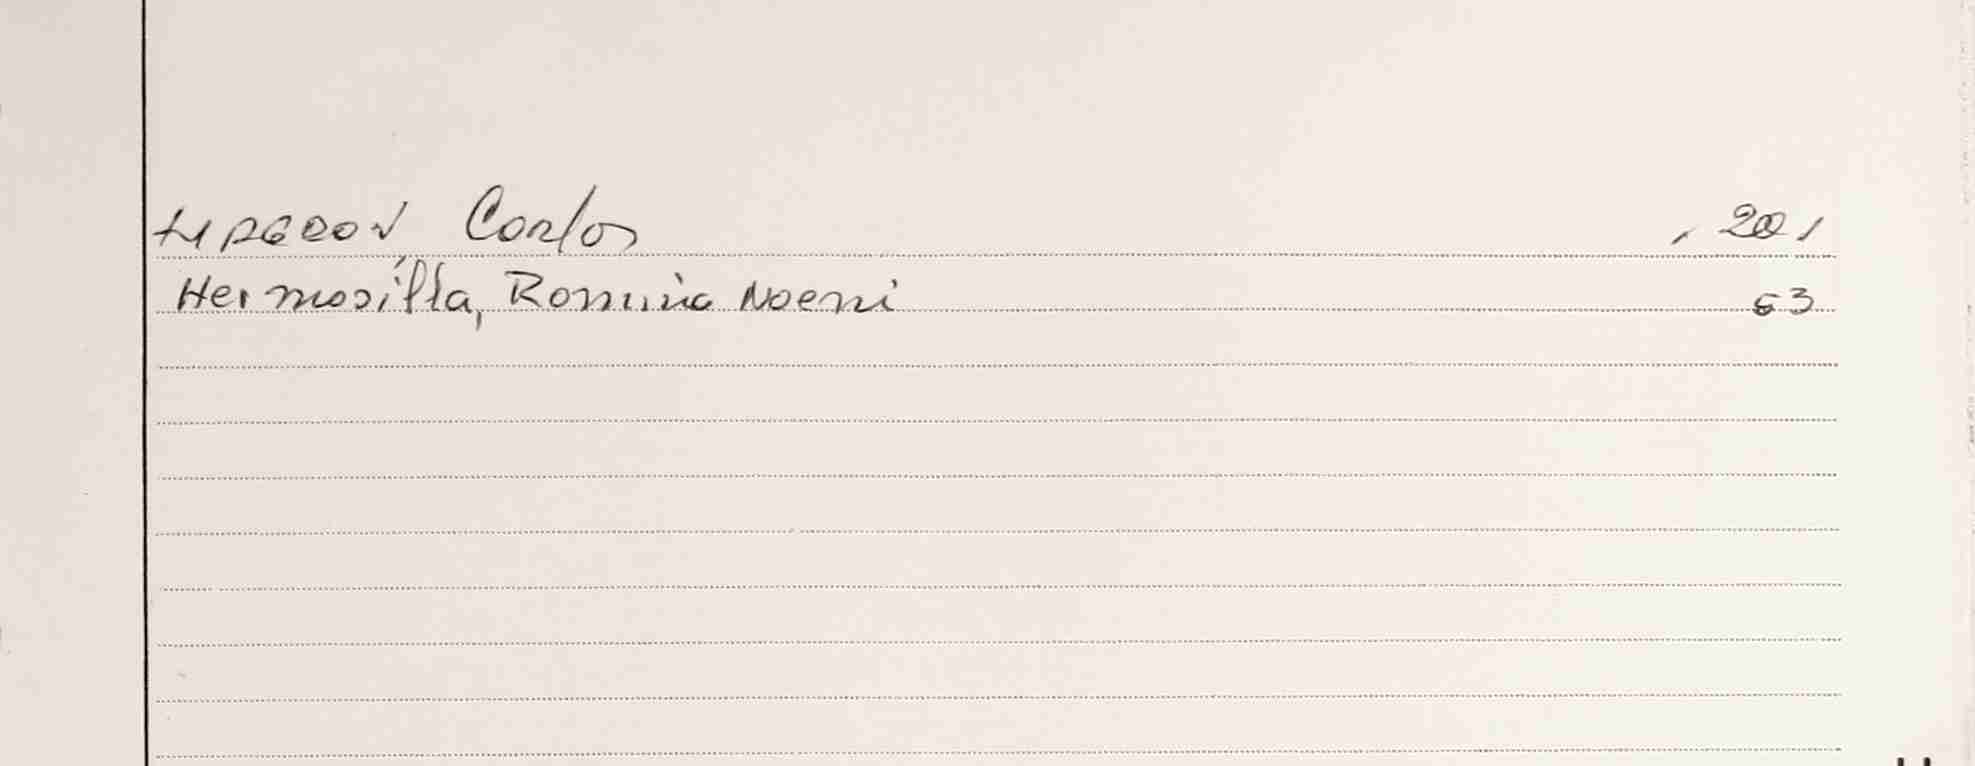 Carlos 201
Hermosilla, Romina Noemi 53